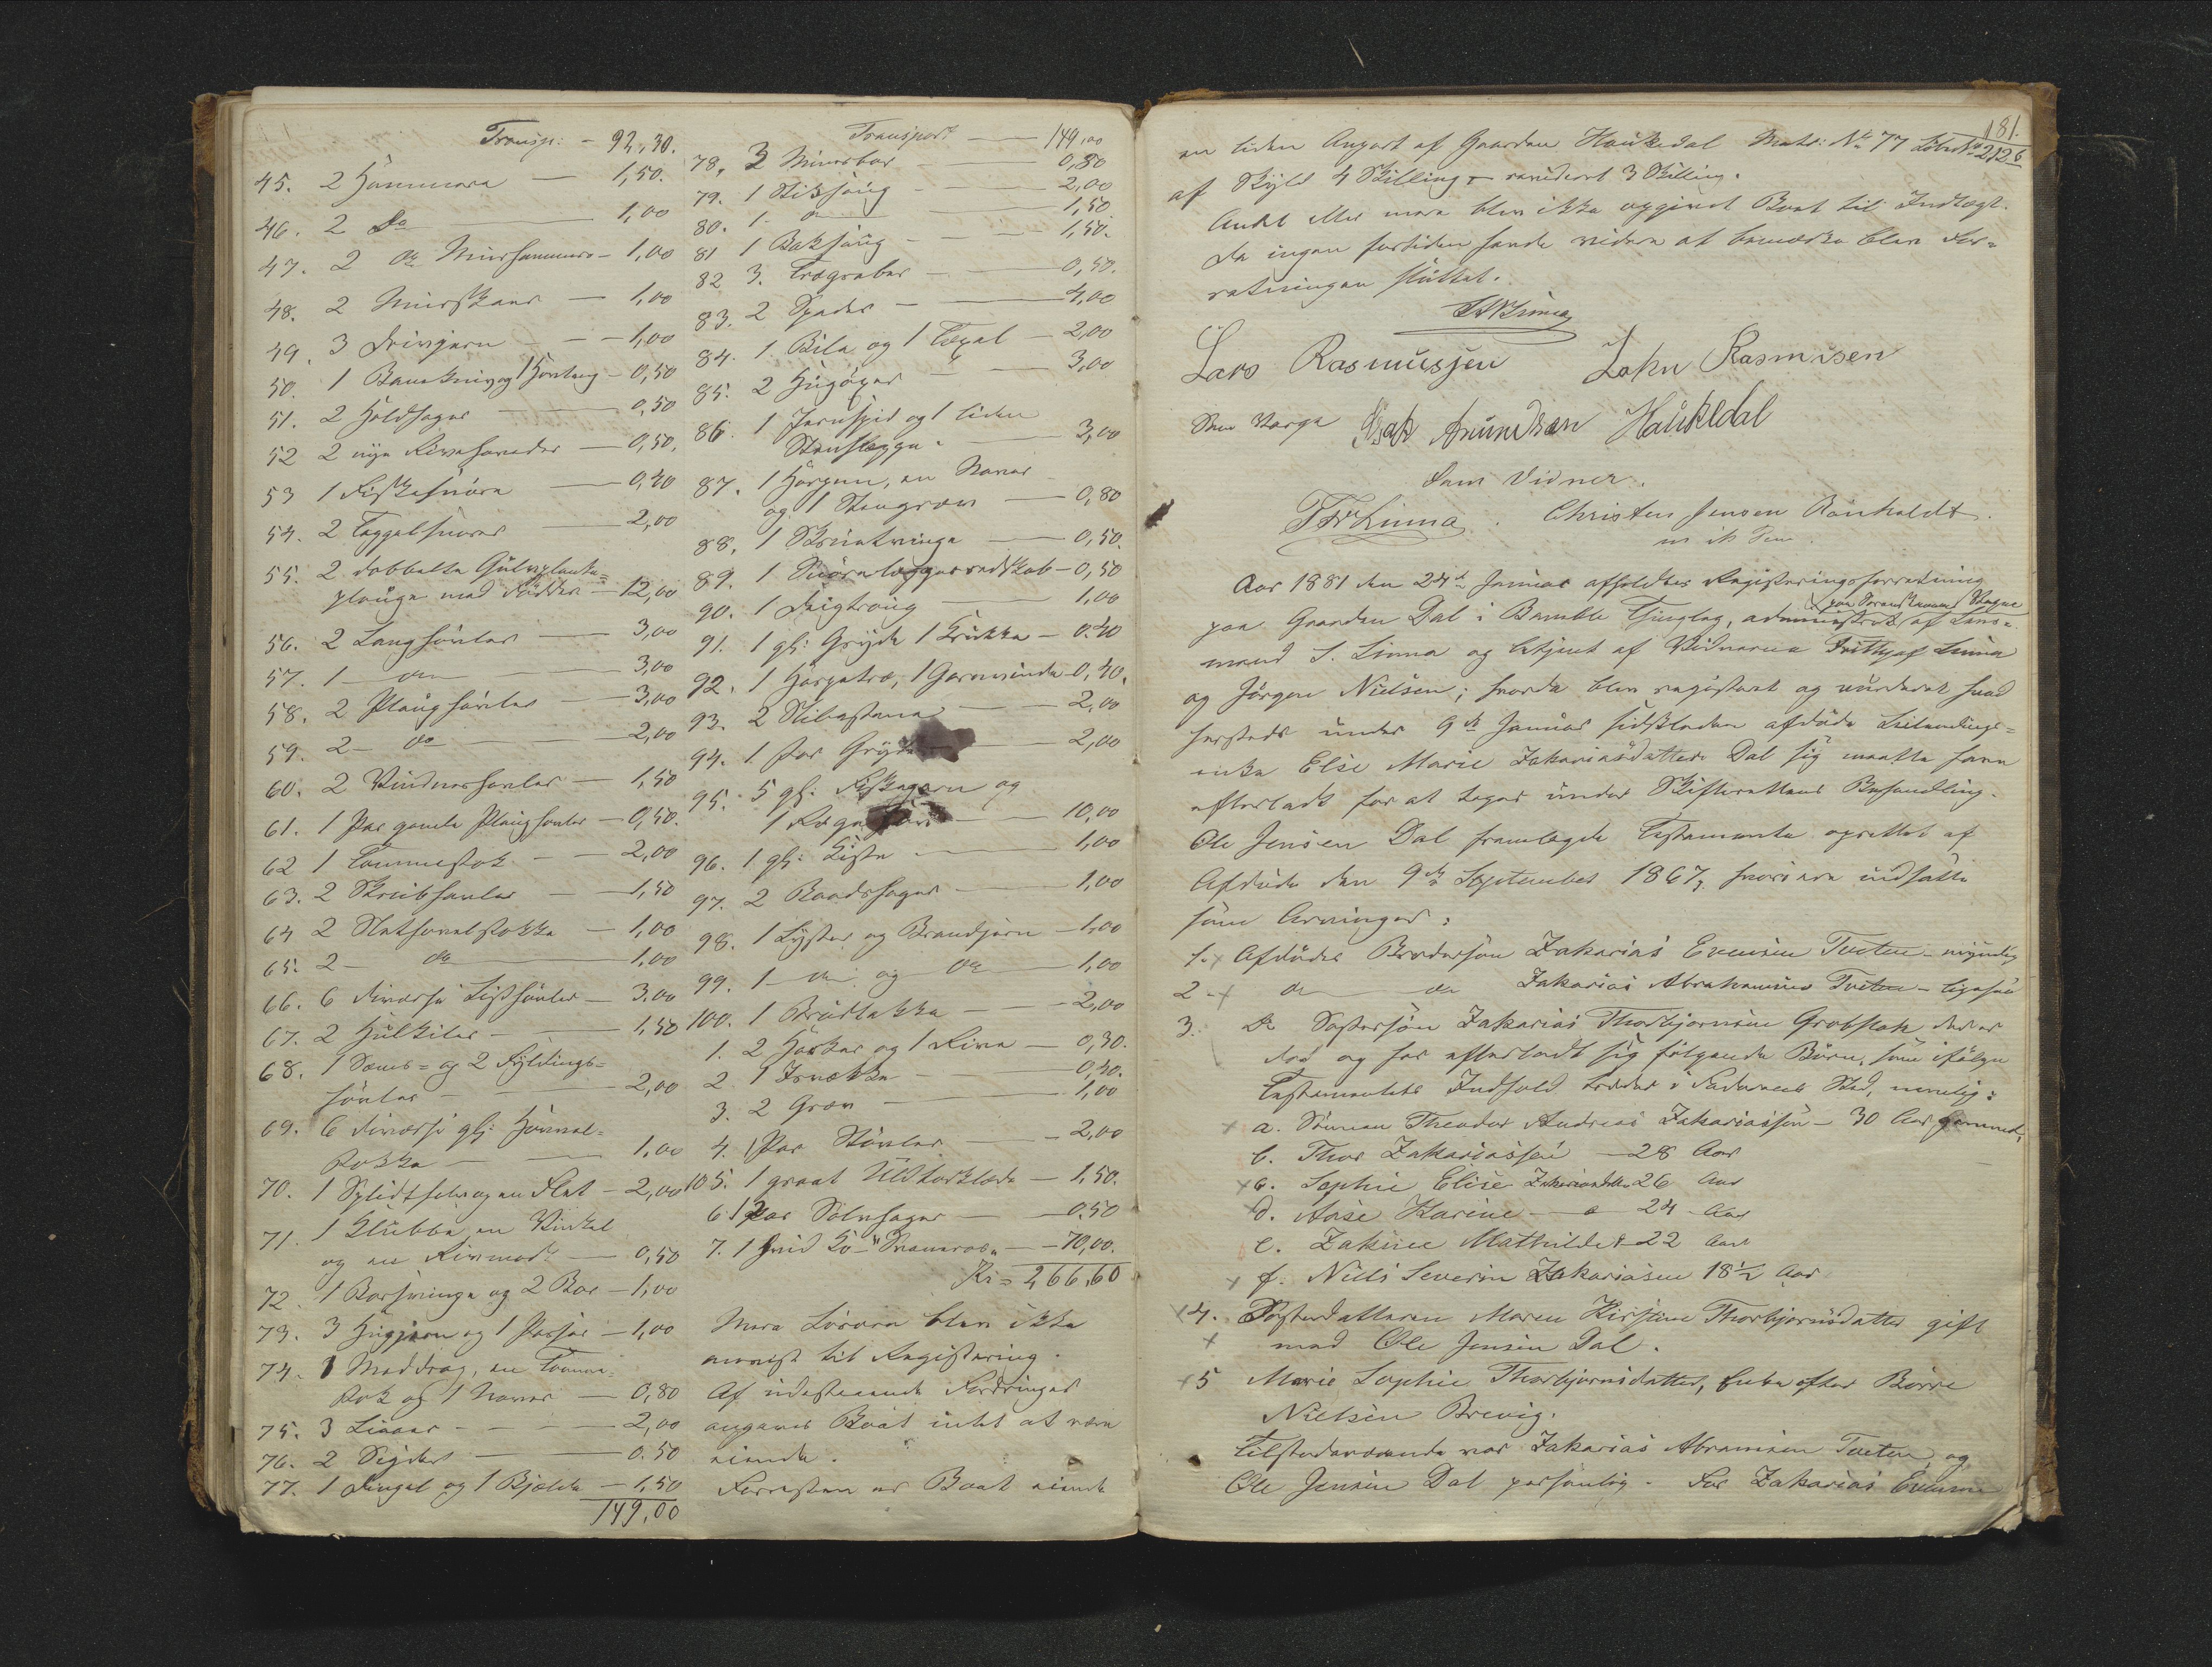 Transp: - 92,30.
45. 2 Hammere — 1,50.
46. 2 Do — 1,00
47. 2 do Murhammere - 1,00
48. 2 Murskeer — 1,00
49. 3 Drivjern — 1,00
50. 1 Baandkniv og 1 - 0,50
51. 2 Holdhager — 0,50
52 2 nye Rivehoveder — 0,50.
53 1 Fiskesnøre — 0,40
54. 2 — 2,00
55. 2 dobbelte Gulvplanke=
plouge med — 12,00
56. 2 Langhøvler — 3,00
57. 1 — do — 3,00
58. 2 Ploughøvler — 3,00
59. 2 — do — 2,00
60. 2 Vindueshøvler — 1,50
61. 1 Par gamle Ploughøvler - 0,50.
62 1 Tommestok — 2,00
63. 2 Skrubhøvler — 1,50
64 2 — 1,00
65. 2 — do — 1,00
66. 6 diverse Listhøvler — 3,00
67. 2 Hulkiler — 1,50
68. 1 og 2 Fyldings=
høvler — 2,00
69. 6 diverse gl: Høvvel=
stokke — 1,00
70. 1 og en Flat — 2,00
71. 1 Klubbe, en Vinkel
og en Rivmodt — 0,50
72. 1 Borsvinge og 2 Bor — 1,00
73. 3 Hugjern og 1 Passer — 1,00
74. 1 Meddrag, en Tomme=
stok og 1 Naver — 0,80
75. 3 Liaaer — 2,00
76. 2 Sigder — 0.50
77. 1 Fengsel og 1 Bjelde — 1,50
149,00
Transport — 149,00
78. 3 Minerbor — 0,80
79. 1 Stiksaug — 2,00
80. 1 do — 1,50
81 1 Baksaug — 1,50.
82 3. Trægreber — 0,50.
83. 2 Spader — 4,00
84. 1 Bile og 1 Texel — 2,00
85. 2 Hugøxer — 3,00
86. 1 Jernspid og 1 liden
Stenslægge — 3,00
87. 1 Harpun, en Naver
og 1 — 0,80
88. 1 Skruetvinge — 0,50.
89. 1 — 0,50
90. 1 Deigtroug — 1,00
91. 1 gl: Gryde 1 Krukke — 0.40
92. 1 Haspetræ, 1 Garnvinde - 0,40.
93. 2 Slibestene — 2,00
94. 1 Par — 2,00
95. 5 gl: Fiskegarn og
1 — 10,00
96. 1 gl: Kiste — 1,00
97. 2 Baadshager — 1,00
98. 1 Lyster og Brandjern — 1,00
99. 1 — do og do — 1,00
100. 1 — 2,00
1. 2 Hakker og 1 Rive — 0,30.
2. 1 — 0,40.
3. 2 Grev — 1,00
4. 1 Par Støvler — 2,00
105. 1 graat Uldtørklæde — 1,50.
6. 1 Par — 0.50
7. 1 hvid Ko "Svaneros" — 70,00.
Kr = 266,60
Mere Løsøre blev ikke
anvist til Registering.
Af udestaaende Fordringer
angaves Boet intet at være
eiende.
Forresten er Boet eiende
181.
en liden Anpart af Gaarden Haukedal Matr: No 77 Løbe No 212 b
af Skyld 4 Skilling, revideret 3 Skilling.
Andet eller mere blev ikke opgivet Boet til Indtægt.
Da ingen fortiden havde videre at bemærke blev For=
retningen sluttet.
Lars Rasmussen John Rasmusen
Som Værge Isak Amundsen Haukedal
Som Vidner.
F W Linna. Christen Jensen Rønholdt
m. ih. Pen.
Aar 1881 den 24de Januar afholdtes Registeringsforretning
paa Gaarden Dal i Bamble Thinglag, administreret af Lens=
paa Sorenskriverens Vegne
mand S. Linna og betjent af Vidnerne Frithjof Linna
og Jørgen Nielsen; hvorda blev registeret og vurderet hvad
hersteds under 9de Januar sidstleden afdøde Leilændings=
enke Else Marie Zakariasdatter Dal sig maatte have
efterladt for at tages under Skifterettens Behandling.
Ole Jensen Dal fremlagde Testamente oprettet af
Afdøde den 9de September 1867, hvori ere indsatte
som Arvinger:
1. Afdødes Brodersøn Zakarias Evensen Tveten - myndig
2 - do do Zakarias Abrahamsen Tveten - ligesaa
3. Do Søstersøn Zakarias Thorbjørnsen Grobstok der er
død og har efterladt sig følgende Børn, som ifølge
Testamentets Indhold træder i Faderens Sted, nemlig:
a. Simon Theodor Andreas Zakariassen - 30 Aar gammel,
b. Thor Zakariassen — 28 Aar
c. Sophie Elise Zakariasdtr 26 Aar
d. Aase Karine — 24 Aar
e. Zakine Mathilde - 22 Aar
f. Nils Severin Zakariasen 18 1/2 Aar
4. Søsterdatteren Maren Kirstine Thorbjørnsdatter gift
med Ole Jensen Dal.
5 Marie Sophie Thorbjørnsdatter, Enke efter Børre
Nielsen Brevig.
Tilstedeværende var Zakarias Abramsen Tveten og
Ole Jensen Dal personlig. For Zakarias Evensen